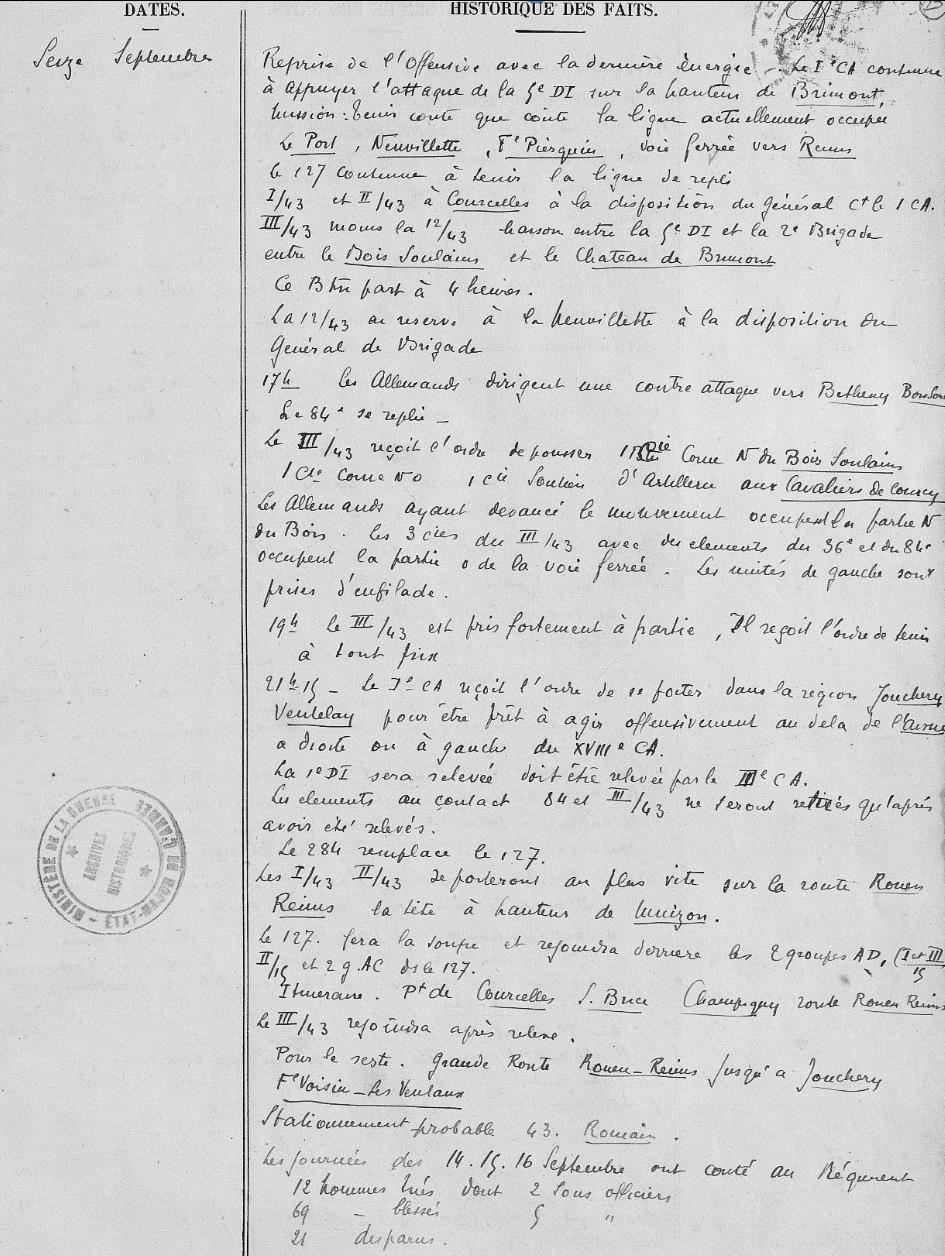 DATES.
HISTORIQUE DES FAITS.
Seize Septembre
Reprise de l'Offensive avec la dernière énergie – Le I° CA continue
à appuyer l'attaque de la 5e DI sur la hauteur de Brimont,
Mission : tenir coute que coute la ligne actuellement occupée
Le Port, Neuvillette, Fe Pierquin, voie ferrée vers Reims
le 127 continue à tenir la ligne de repli
I/43 et II/43 à Courcelles à la disposition du Général Ct le 1 CA.
III/43 moins la 12/43 liaison entre la 5e DI et la 2e Brigade
entre le Bois Soulains et le Chateau de Brimont
Ce Btn part à 4 heures.
La 12/43 en reserve à la Neuvillette à la disposition du
Général de Brigade
17h Les Allemands dirigent une contre attaque vers Betheny
Le 84e se replie –
Le III/43 reçoit l'ordre de pousser 1 Cie Corne N du Bois Soulains
1 Cie Corne NO 1 cie Soutien d'Artillerie aux Cavaliers de Courcy
Les Allemands ayant devancé le mouvement occupent la partie N
du Bois. Les 3 cies du III/43 avec des elements du 36e et du 84e
occupent la partie O de la voie ferrée. Les unités de gauche sont
prises d'enfilade.
19h le III/43 est pris fortement à partie, Il reçoit l'ordre de tenir
à tout prix
21h15 – Le I° CA reçoit l'ordre de se porter dans la région Jonchery
Ventelay pour être prêt à agir offensivement au dela de l'Aisne
a droite ou à gauche du XVIII e CA.
La 1e DI sera relevée doit être relevée par le III e CA.
Les elements au contact 84 et III/43 ne seront retirés qu'après
avoir été relevés.
Le 284 remplace le 127.
Les I/43 II/43 se porteront au plus vite sur la route Rouen
Reims la tête à hauteur de Muizon.
Le 127. fera la soupe et rejoindra derriere les 2 groupes AD, (I et III/15
II/15 et 2 g. AC ds le 127.
Itineraire. Pt de Courcelles S. Brice Champigny route Rouen Reims
Le III/43 rejoindra après releve.
Pour le reste. Grande Route Rouen-Reims jusqu'a Jonchery
Fe Voisin – Les Ventaux
Stationnement probable 43. Romain.
Les journées des 14. 15. 16 Septembre ont couté au Régiment
12 hommes tués dont 2 Sous officiers
69 – blessés 5 "
21 disparus.
MINISTÈRE DE LA GUERRE
ÉTAT-MAJOR DE L'ARMÉE
ARCHIVES
HISTORIQUES